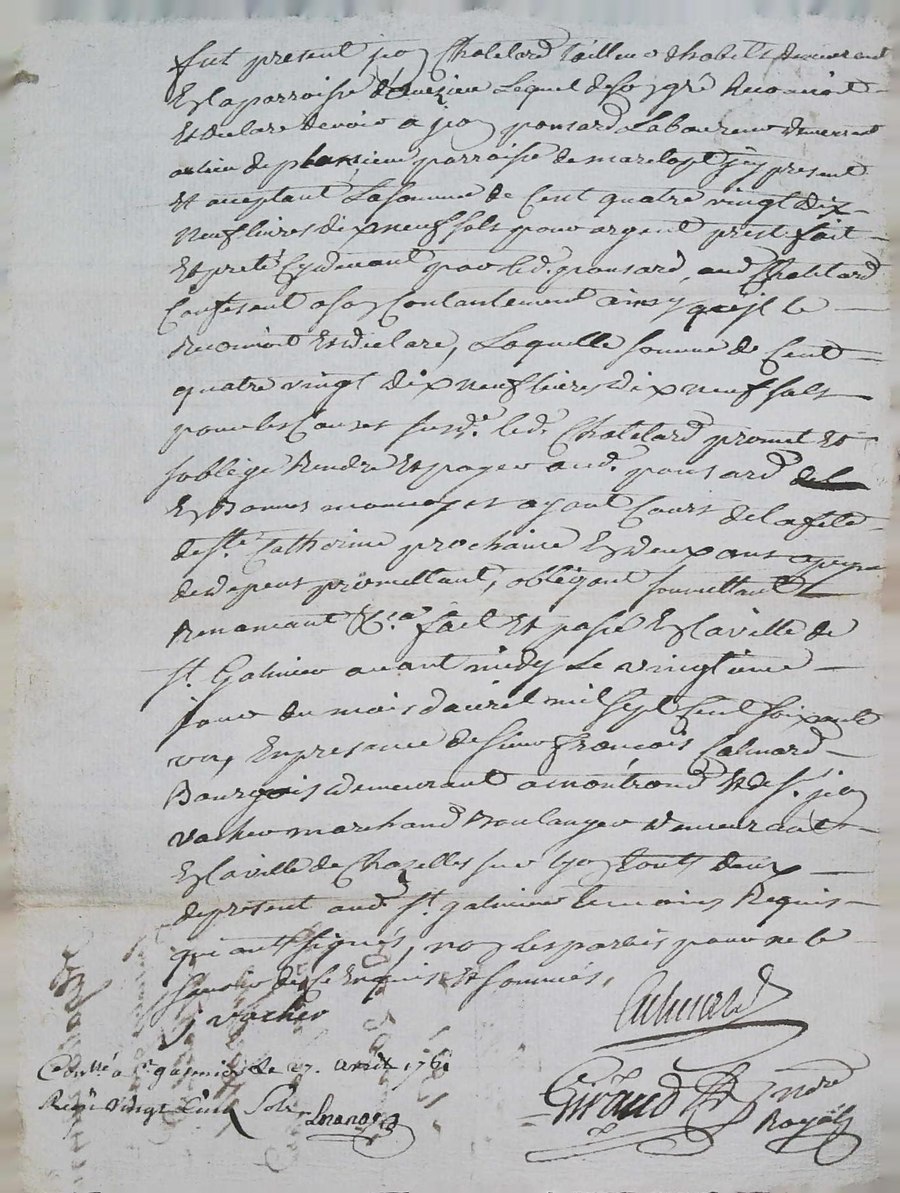 fut present jean Chatelard tailleur dhabits demeurant
En la parroisse d'Aveizieu Lequel de son gré Reconnoit
Et declare devoir a jean ponsard Laboureur demeurant
au lieu de parroisse de marclopt icy present
Et acceptant La somme de Cent quatre vingt dix
Neuf livres dix neuf sols pour argent prest fait
Et preté Cydevant par led. ponsard, aud Chatelard
Confessant a son Contantement ainsy qu'il le
Reconnoit Et declare, Laquelle somme de Cent
quatre vingt dix neuf livres dix neuf sols
pour les Causes susd. led. Chatelard promet Et
soblige Rendre Et payer aud. ponsard
En Bonnes monnoyes ayant Cours de la fete
de Ste Catherine prochaine En deux ans apres
de depens promettant, obligeant soumettant
Renoncant &ca. fait Et passé En la ville de
St. Galmier avant midy Le vingtieme
jour du mois davril mil sept Cent soixante
un, En presence de sieur françois Calmard
Bourgeois demeurant a montrond Et de sr. jean
Vacher marchand Boulanger demeurant
En la ville de Chazelles sur Lyon touts deux
de present aud St. galmier temoins Requis
qui ont signés, non les parties pour ne le
savoir de ce Enquis Et sommés,
j vacher
Calmard
Conllé a St galmier Le 27. avril 1761
Reçu vingt Cinq Sols
Giraud Nre
Royal